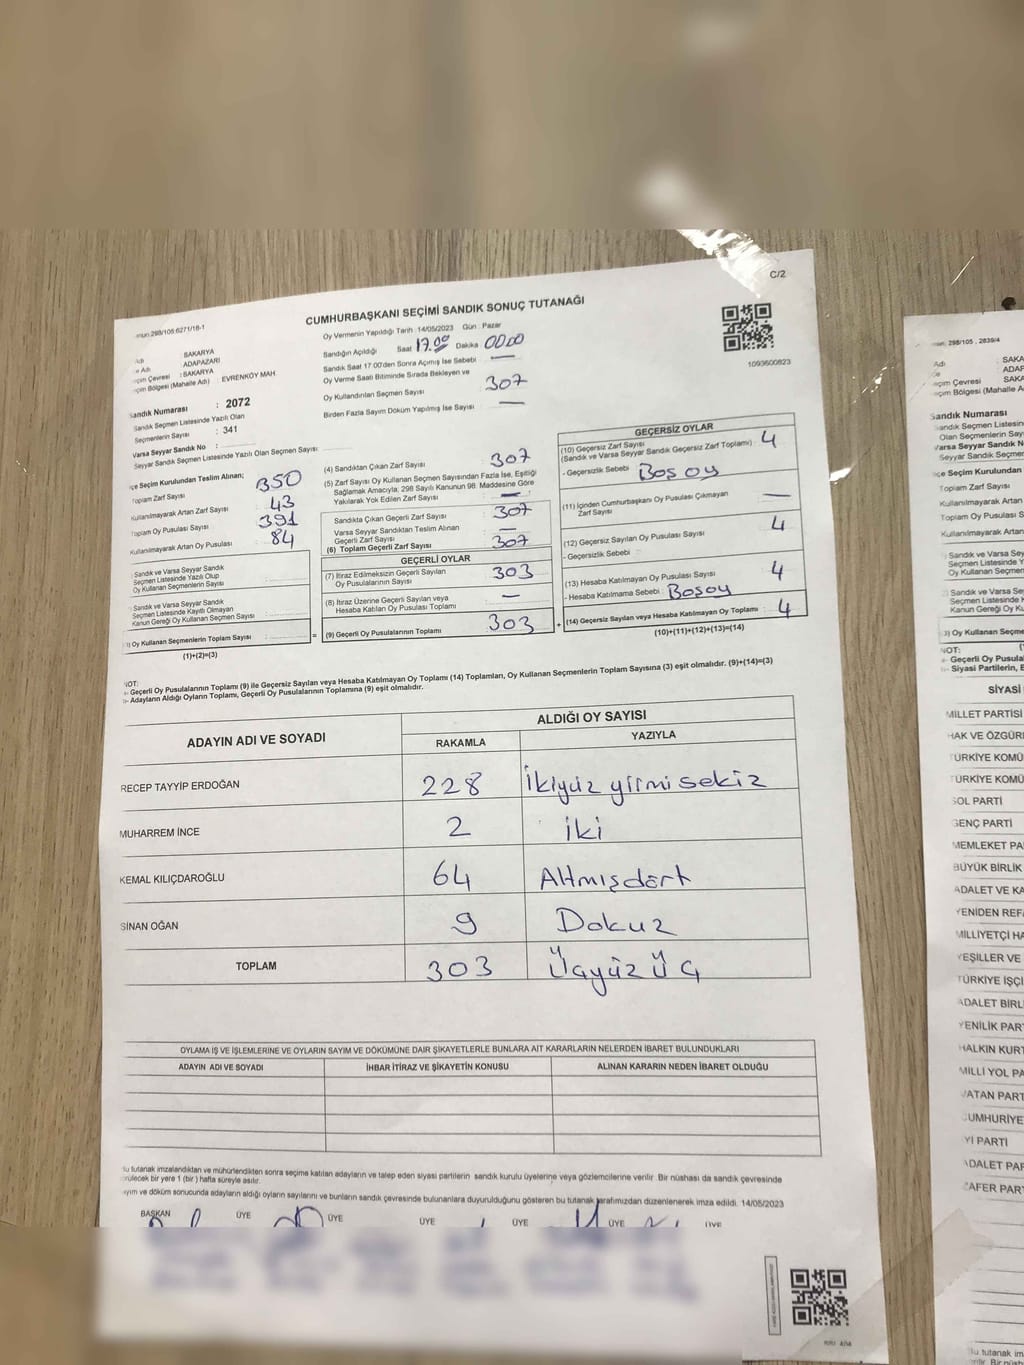 C/2
CUMHURBAŞKANI SEÇİMİ SANDIK SONUÇ TUTANAĞI
Oy Vermenin Yapıldığı Tarih : 14/05/2023 Gün : Pazar
Sandığın Açıldığı Saat 17.00 Dakika 00.00
Sandık Saat 17:00'den Sonra Açımış İse Sebebi —
Oy Verme Saati Bitiminde Sırada Bekleyen ve
Oy Kullandırılan Seçmen Sayısı 307
Birden Fazla Sayım Döküm Yapılmış İse Sayısı —
1093600823
298/105.6271/18-1
Adı SAKARYA
Adı ADAPAZARI
Çevresi : SAKARYA
Bölgesi (Mahalle Adı) : EVRENKÖY MAH.
Sandık Numarası : 2072
Sandık Seçmen Listesinde Yazılı Olan
Seçmenlerin Sayısı : 341
Varsa Seyyar Sandık No :
Seyyar Sandık Seçmen Listesinde Yazılı Olan Seçmen Sayısı
Seçim Kurulundan Teslim Alınan;
Toplam Zarf Sayısı 350
Kullanılmayarak Artan Zarf Sayısı 43
Toplam Oy Pusulası Sayısı 391
Kullanılmayarak Artan Oy Pusulası 84
Sandık ve Varsa Seyyar Sandık
Seçmen Listesinde Yazılı Olup
Oy Kullanan Seçmenlerin Sayısı
Sandık ve Varsa Seyyar Sandık
Seçmen Listesinde Kayıtlı Olmayan
Kanun Gereği Oy Kullanan Seçmen Sayısı
Oy Kullanan Seçmenlerin Toplam Sayısı : =
(1)+(2)=(3)
(4) Sandıktan Çıkan Zarf Sayısı 307
(5) Zarf Sayısı Oy Kullanan Seçmen Sayısından Fazla İse, Eşitliği
Sağlamak Amacıyla; 298 Sayılı Kanunun 98. Maddesine Göre
Yakılarak Yok Edilen Zarf Sayısı —
Sandıkta Çıkan Geçerli Zarf Sayısı 307
Varsa Seyyar Sandıktan Teslim Alınan
Geçerli Zarf Sayısı —
(6) Toplam Geçerli Zarf Sayısı 307
GEÇERLİ OYLAR
(7) İtiraz Edilmeksizin Geçerli Sayılan
Oy Pusulalarının Sayısı 303
(8) İtiraz Üzerine Geçerli Sayılan veya
Hesaba Katılan Oy Pusulası Toplamı —
(9) Geçerli Oy Pusulalarının Toplamı 303 +
GEÇERSİZ OYLAR
(10) Geçersiz Zarf Sayısı
(Sandık ve Varsa Seyyar Sandık Geçersiz Zarf Toplamı) 4
- Geçersizlik Sebebi Boşoy
(11) İçinden Cumhurbaşkanı Oy Pusulası Çıkmayan
Zarf Sayısı —
(12) Geçersiz Sayılan Oy Pusulası Sayısı 4
- Geçersizlik Sebebi :
(13) Hesaba Katılmayan Oy Pusulası Sayısı 4
- Hesaba Katılmama Sebebi : Boşoy
(14) Geçersiz Sayılan veya Hesaba Katılmayan Oy Toplamı : 4
(10)+(11)+(12)+(13)=(14)
NOT:
Geçerli Oy Pusulalarının Toplamı (9) ile Geçersiz Sayılan veya Hesaba Katılmayan Oy Toplamı (14) Toplamları, Oy Kullanan Seçmenlerin Toplam Sayısına (3) eşit olmalıdır. (9)+(14)=(3)
Adayların Aldığı Oyların Toplamı, Geçerli Oy Pusulalarının Toplamına (9) eşit olmalıdır.
ADAYIN ADI VE SOYADI ALDIĞI OY SAYISI
RAKAMLA YAZIYLA
RECEP TAYYİP ERDOĞAN 228 İkiyüz yirmi sekiz
MUHARREM İNCE 2 iki
KEMAL KILIÇDAROĞLU 64 Altmışdört
SİNAN OĞAN 9 Dokuz
TOPLAM 303 Üçyüz Üç
OYLAMA İŞ VE İŞLEMLERİNE VE OYLARIN SAYIM VE DÖKÜMÜNE DAİR ŞİKAYETLERLE BUNLARA AİT KARARLARIN NELERDEN İBARET BULUNDUKLARI
ADAYIN ADI VE SOYADI İHBAR İTİRAZ VE ŞİKAYETİN KONUSU ALINAN KARARIN NEDEN İBARET OLDUĞU
tutanak imzalandıktan ve mühürlendikten sonra seçime katılan adayların ve talep eden siyasi partilerin sandık kurulu üyelerine veya gözlemcilerine verilir. Bir nüshası da sandık çevresinde
bir yere 1 (bir) hafta süreyle asılır.
ve döküm sonucunda adayların aldığı oyların sayılarını ve bunların sandık çevresinde bulunanlara duyurulduğunu gösteren bu tutanak tarafımızdan düzenlenerek imza edildi. 14/05/2023
BAŞKAN ÜYE ÜYE ÜYE ÜYE ÜYE ÜYE
298/105 , 2839/4
Adı SAKA
ADAP
Çevresi SAKA
Bölgesi (Mahalle A
Sandık Numarası
Sandık Seçmen Listesin
Olan Seçmenlerin Sayı
Varsa Seyyar Sandık N
Seyyar Sandık Seçmen
Seçim Kurulundan
Toplam Zarf Sayısı
Kullanılmayarak Artan
Toplam Oy Pusulası
Kullanılmayarak Artan
Sandık ve Varsa Sey
Seçmen Listesinde Y
Oy Kullanan Seçmen
Sandık ve Varsa Sey
Seçmen Listesinde K
Kanun Gereği Oy Ku
Oy Kullanan Seçme
NOT:
Geçerli Oy Pusula
Siyasi Partilerin, E
SİYASİ
MİLLET PARTİSİ
HAK VE ÖZGÜR
TÜRKİYE KOMÜ
TÜRKİYE KOMÜ
SOL PARTİ
GENÇ PARTİ
MEMLEKET PA
BÜYÜK BİRLİK
ADALET VE KA
YENİDEN REFA
MİLLİYETÇİ HA
YEŞİLLER VE
TÜRKİYE İŞÇİ
ADALET BİRL
YENİLİK PAR
HALKIN KURT
MİLLİ YOL PA
VATAN PART
CUMHURİYE
İYİ PARTİ
ADALET PAR
ZAFER PAR
Bu tutanak im